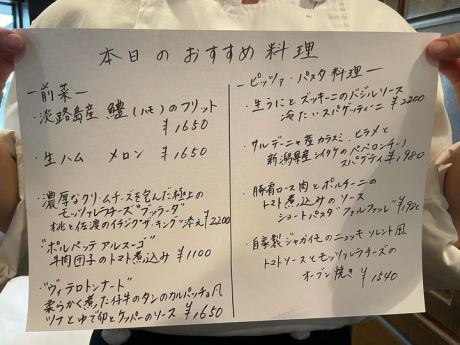 本日のおすすめ料理
ー前菜ー
・淡路島産 鱧(ハモ)のフリット
¥1650
・生ハム メロン ¥1650
・濃厚なクリームチーズを包んだ極上の
モッツァレラチーズ"ブッラータ"
桃と佐渡のイチジク"ザ・キング"添え ¥2200
・"ポルペッテ アル スーゴ"
牛肉団子のトマト煮込み ¥1100
・"ヴィテロトンナート"
柔らかく煮た仔牛のタンのカルパッチョ風
ツナとゆで卵とケッパーのソース ¥1650
ーピッツァ・パスタ料理ー
・生うにとズッキーニのバジルソース
冷たいスパゲッティーニ ¥2200
・サルデーニャ産カラスミ、ヒラメと
新潟県産シイタケのペペロンチーノ
スパゲティ ¥1980
・豚肩ロース肉とポルチーニの
トマト煮込みのソース
ショートパスタ"ファルファッレ" ¥198
・自家製ジャガイモのニョッキ ソレント風
トマトソースとモッツァレラチーズの
オーブン焼き ¥1540